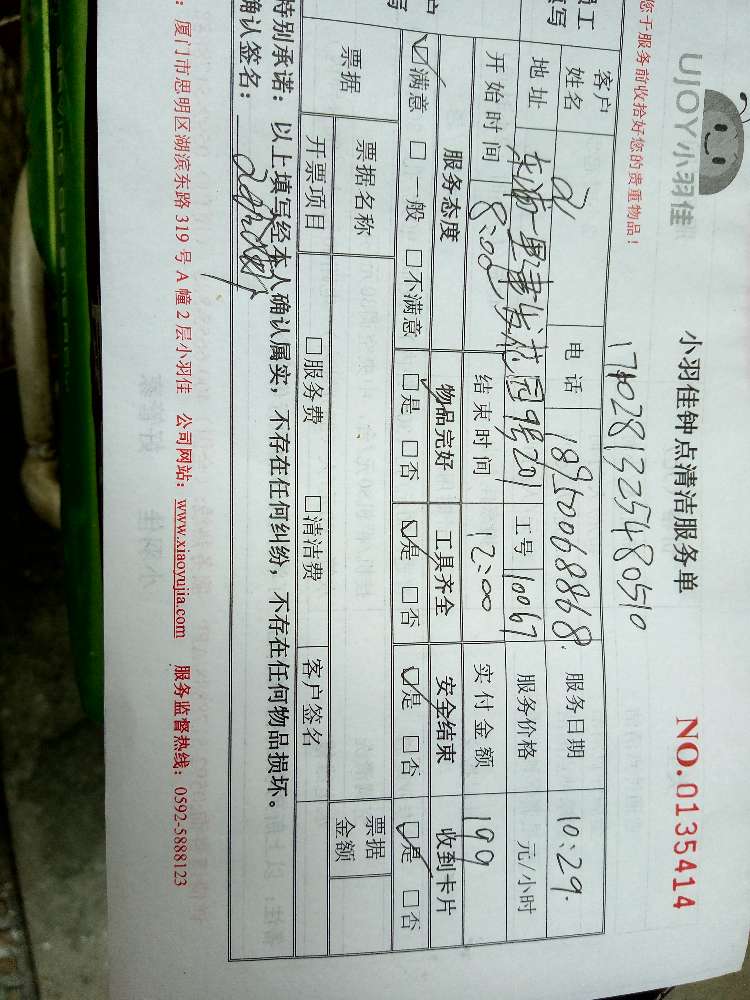 UJOY小羽佳
小羽佳钟点清洁服务单
NO.0135414
您于服务前收拾好您的贵重物品!
客户姓名
电话 18950068868.
服务日期 10:29.
地址
花园
201
工号 10067
服务价格 元/小时
开始时间 8:00
结束时间 12:00
实付金额 199
服务态度 物品完好 工具齐全 安全结束 收到卡片
☑满意 □一般 □不满意 ☑是 □否 ☑是 □否 ☑是 □否 ☑是 □否
票据 票据名称 票据金额
开票项目 □服务费 □清洁费 客户签名
特别承诺:以上填写经本人确认属实,不存在任何纠纷,不存在任何物品损坏。
确认签名:
:厦门市思明区湖滨东路 319 号 A 幢 2 层小羽佳 公司网站:www.xiaoyujia.com 服务监督热线:0592-5888123